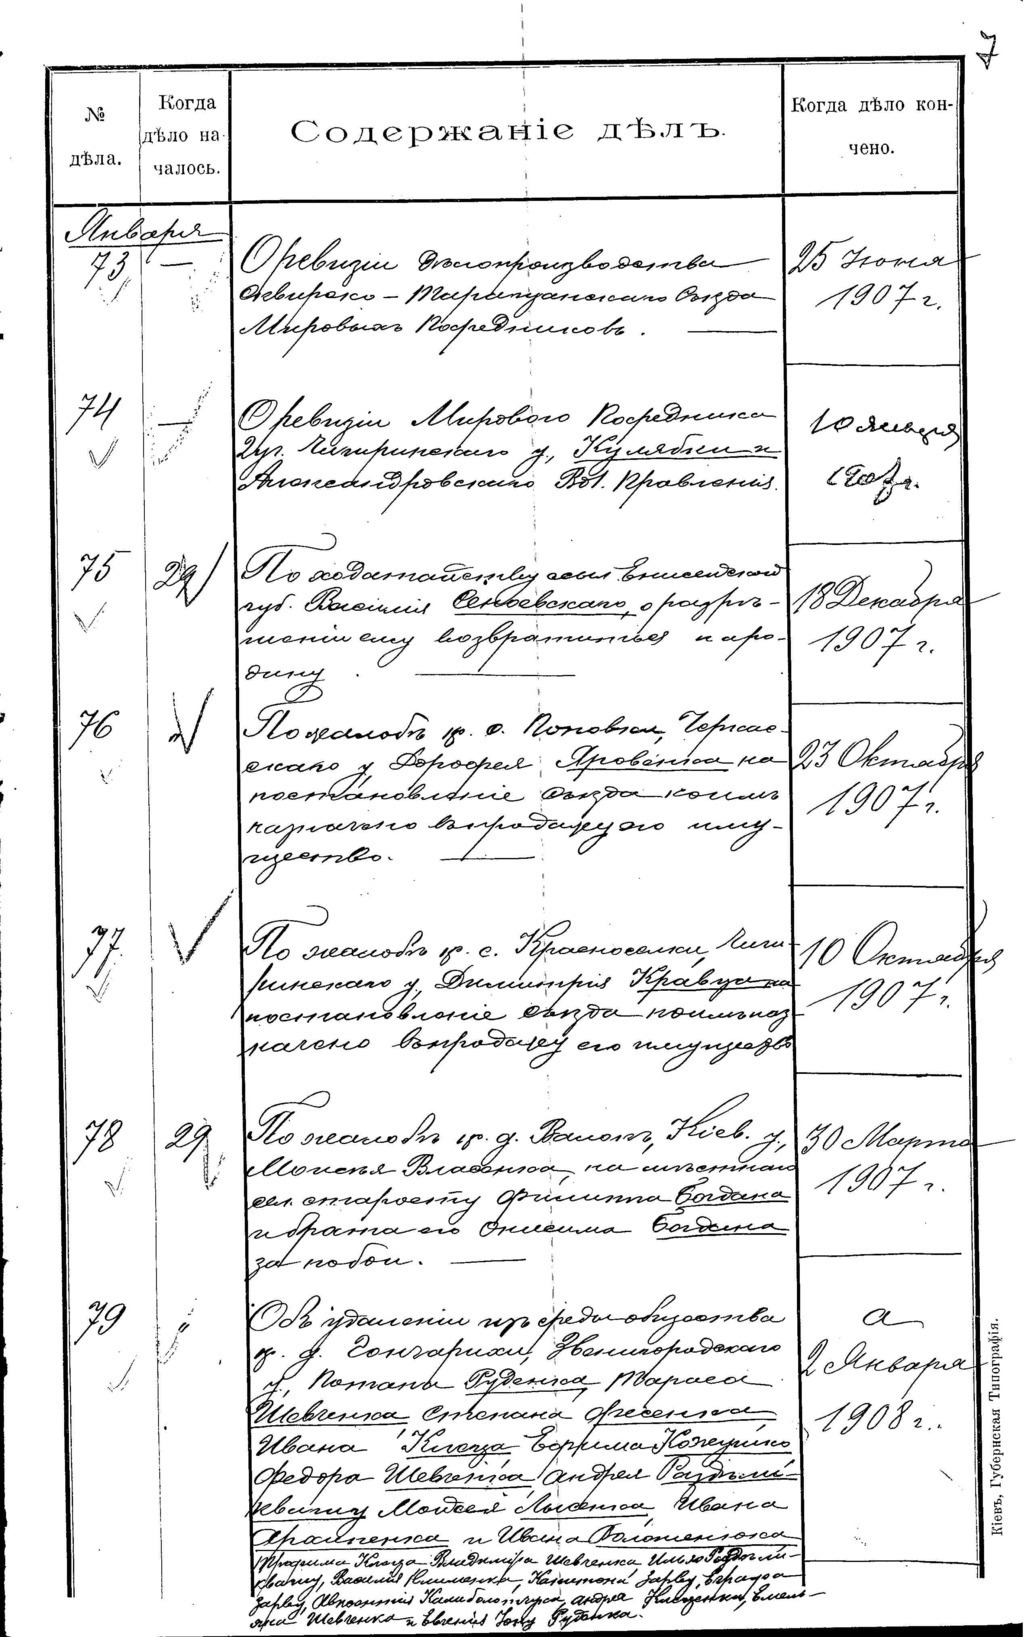 7
№ дѣла.
Когда дѣло началось.
Содержаніе дѣлъ.
Когда дѣло кончено.
Января
73 —
О ревизіи дѣлопроизводства
Сквирско - Таращанскаго Съѣзда
Мировыхъ Посредниковъ.
25 Іюня
1907 г.
74 —
О ревизіи Мирового Посредника
2 уч. Чигиринскаго у., Кулябки и
Александровскаго Вол. Правленія.
10 Января
1907 г.
75 29
По ходатайству ссыл. Енисейской
губ. Василія о разрѣ-
шеніи ему возвратиться на ро-
дину.
18 Декабря
1907 г.
76
По жалобѣ кр. с. Поповки, Черкас-
скаго у. Дорофея Яровенка на
постановленіе Съѣзда коимъ
назначено въ продажу его иму-
щество.
23 Октября
1907 г.
77.
По жалобѣ кр. с. Красноселки, Чиги-
ринскаго у., Димитрія Кравца на
постановленіе Съѣзда коимъ наз-
начено въ продажу его имущество
10 Октября
1907 г.
78 29
По жалобѣ кр. д. Кіев. у.,
Моисея Власенка, на мѣстнаго
сел. старосту Филиппа Богдана
и брата его Онисима Богдана
за побои.
30 Марта
1907 г.
79
Объ удаленіи изъ среды общества
кр. д. Гончарихи, Звенигородскаго
у., Потапа Руденка, Тараса
Шевченка Степана Фесенка
Ивана Клеца Ефрема
Федора Шевченка Андрея
Моисея Лысенка, Ивана
и Ивана
Трофима Клеца Владиміра Шевченка
Василія Клименка,
Андрея Емель-
яна Шевченка и Евгенія Руденка.
2 Января
1908 г.
Кіевъ, Губернская Типографія.